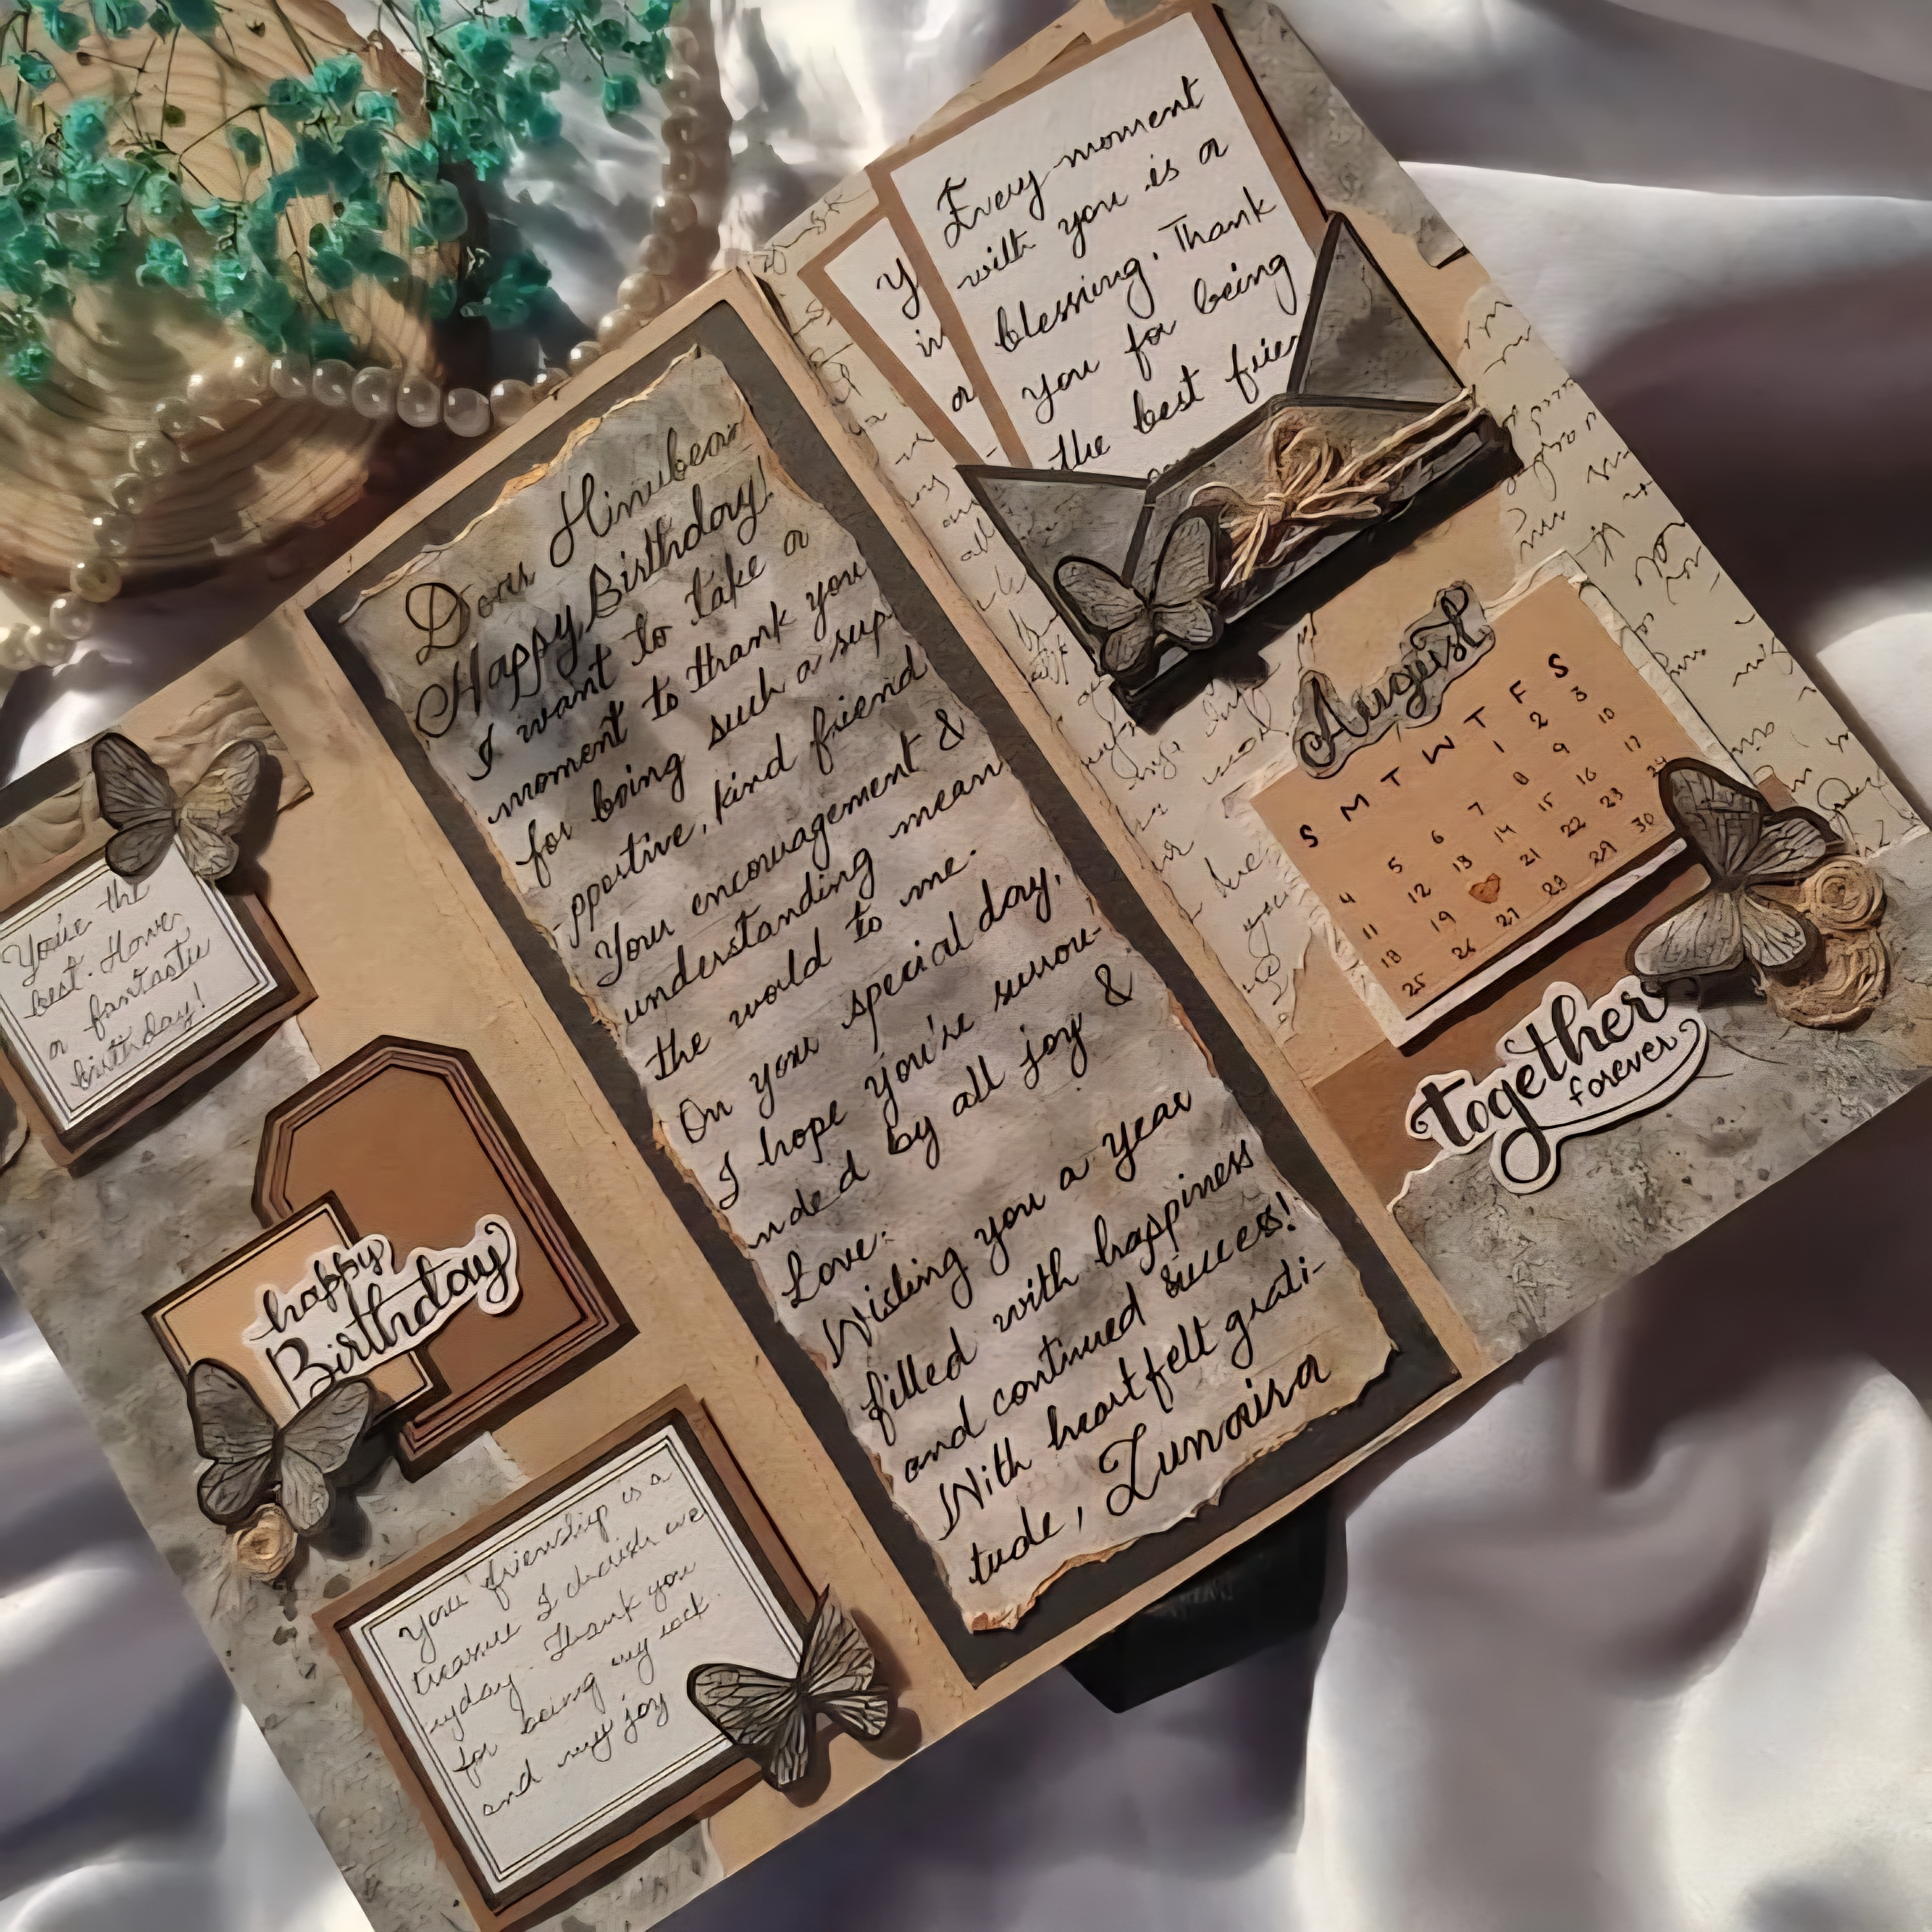 You're the
best. Have
a fantastic
birthday!
happy
Birthday
Your friendship is a
treasure I cherish eve
ryday. Thank you
for being my rock.
and my joy
Dear Hinubear
Happy Birthday!
I want to take a
moment to thank you
for being such a sup-
pportive, kind friend
Your encouragement &
understanding mean
the world to me.
On your special day,
I hope you're surrou-
nded by all joy &
Love.
Wishing you a year
filled with happiness
and continued success!
With heartfelt grati-
tude, Zunaira
Y
in
a
Every moment
with you is a
blessing. Thank
you for being
the best frien
August
S M T W T F S
1 2 3
4 5 6 7 8 9 10
11 12 13 14 15 16 17
18 19 21 22 23 24
25 26 27 28 29 30
together
forever